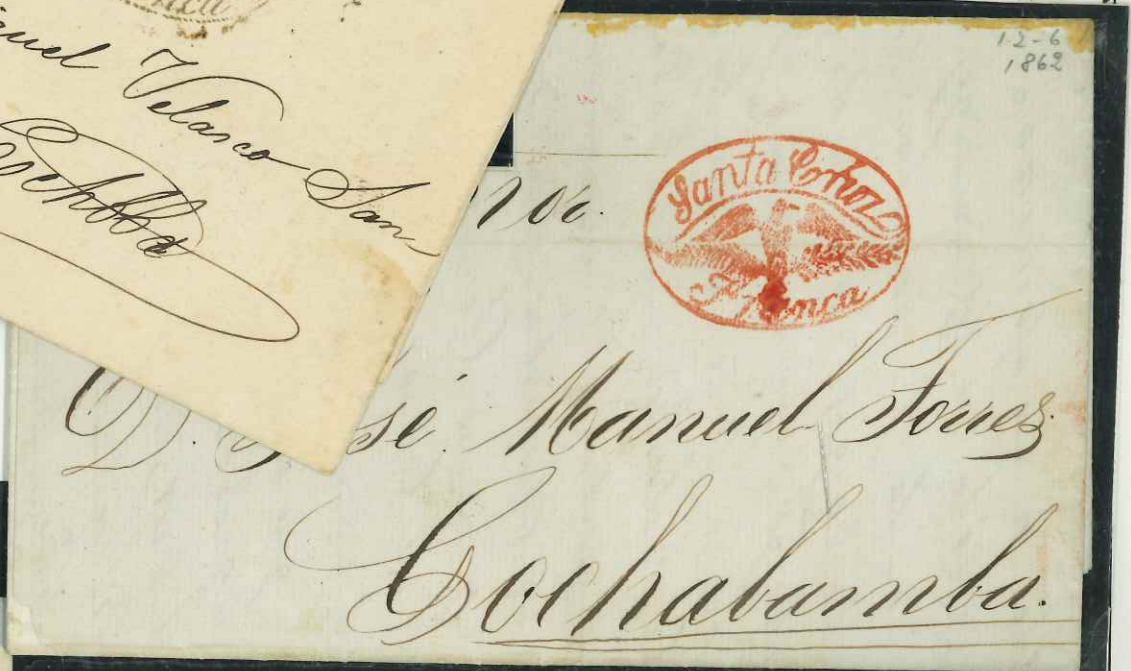 nca
uel Velasco San
1-2-6
1862
Santa Cruz
Franca
nor.
D. José Manuel Torres
Cochabamba.